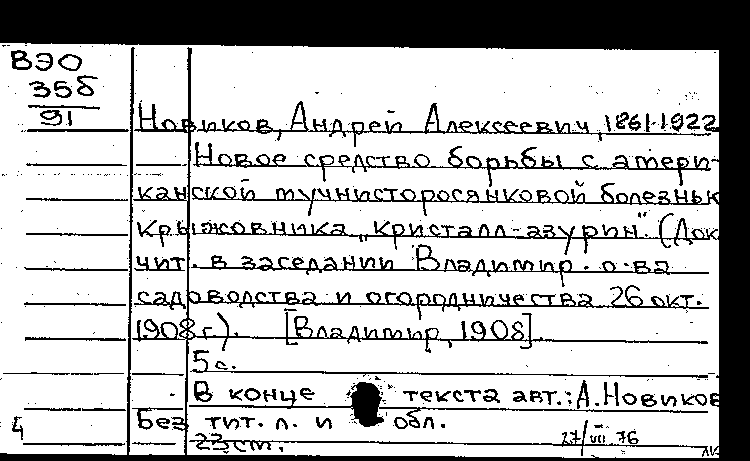 ВЭО
35б
91
Новиков, Андрей Алексеевич, 1861-1922
Новое средство борьбы с амери-
канской мучнисторосянковой болезнью
крыжовника "кристалл-азурин". (Док.
чит. в заседании Владимир. о-ва
садоводства и огородничества 26 окт.
1908 г.). [Владимир, 1908].
5 с.
В конце текста авт.: А. Новиков
Без тит. л. и обл.
4
23 ст.
27/VII 76